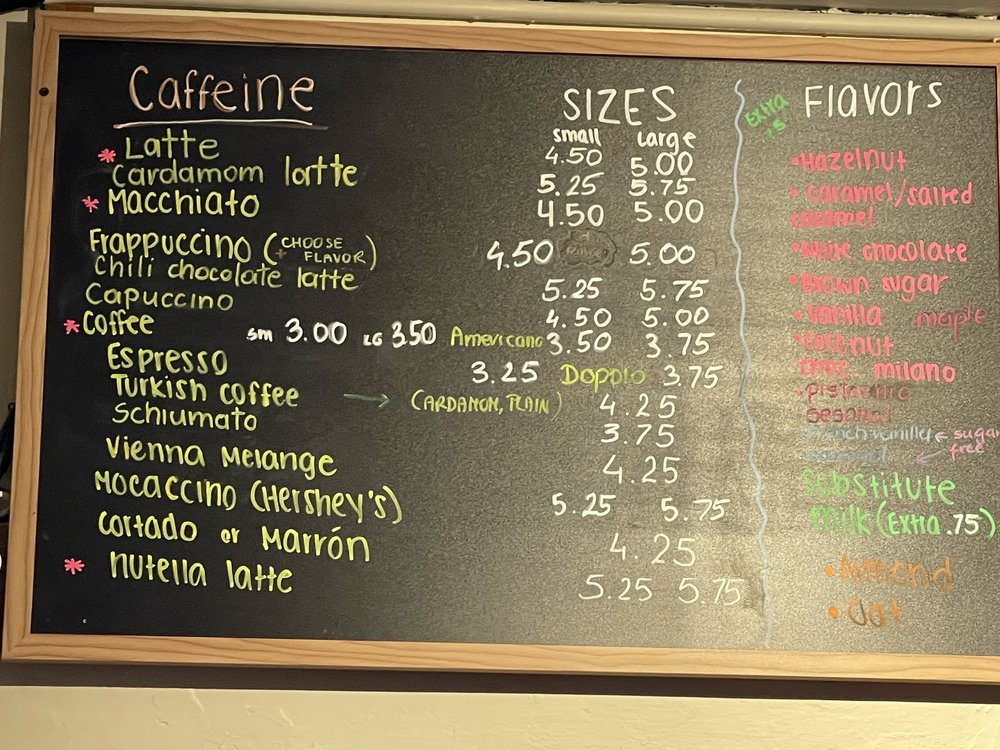 Caffeine
SIZES
small Large
* Latte 4.50 5.00
Cardamom latte 5.25 5.75
* Macchiato 4.50 5.00
Frappuccino (+ CHOOSE FLAVOR) 4.50 5.00
Chili chocolate latte 5.25 5.75
Capuccino 4.50 5.00
* Coffee sm 3.00 LG 3.50 Americano 3.50 3.75
Espresso 3.25 Doppio 3.75
Turkish coffee → (CARDAMOM, PLAIN) 4.25
Schiumato 3.75
Vienna Melange 4.25
Mocaccino (Hershey's) 5.25 5.75
Cortado or Marrón 4.25
* Nutella latte 5.25 5.75
Extra
FLavors
• Hazelnut
• caramel/salted
caramel
• White chocolate
• Brown sugar
• Vanilla maple
• coconut
milano
• Pistachio
• Seasonal
French vanilla ← sugar
free
Substitute
Milk (Extra .75)
• Almond
• Oat